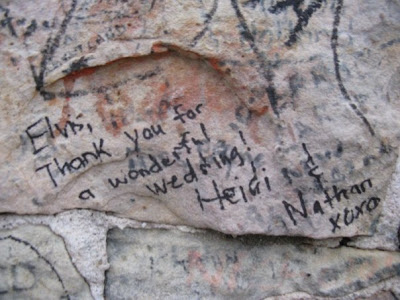 Elvis,
Thank you for
a wonderful
wedding!
Heidi &
Nathan
xoxo